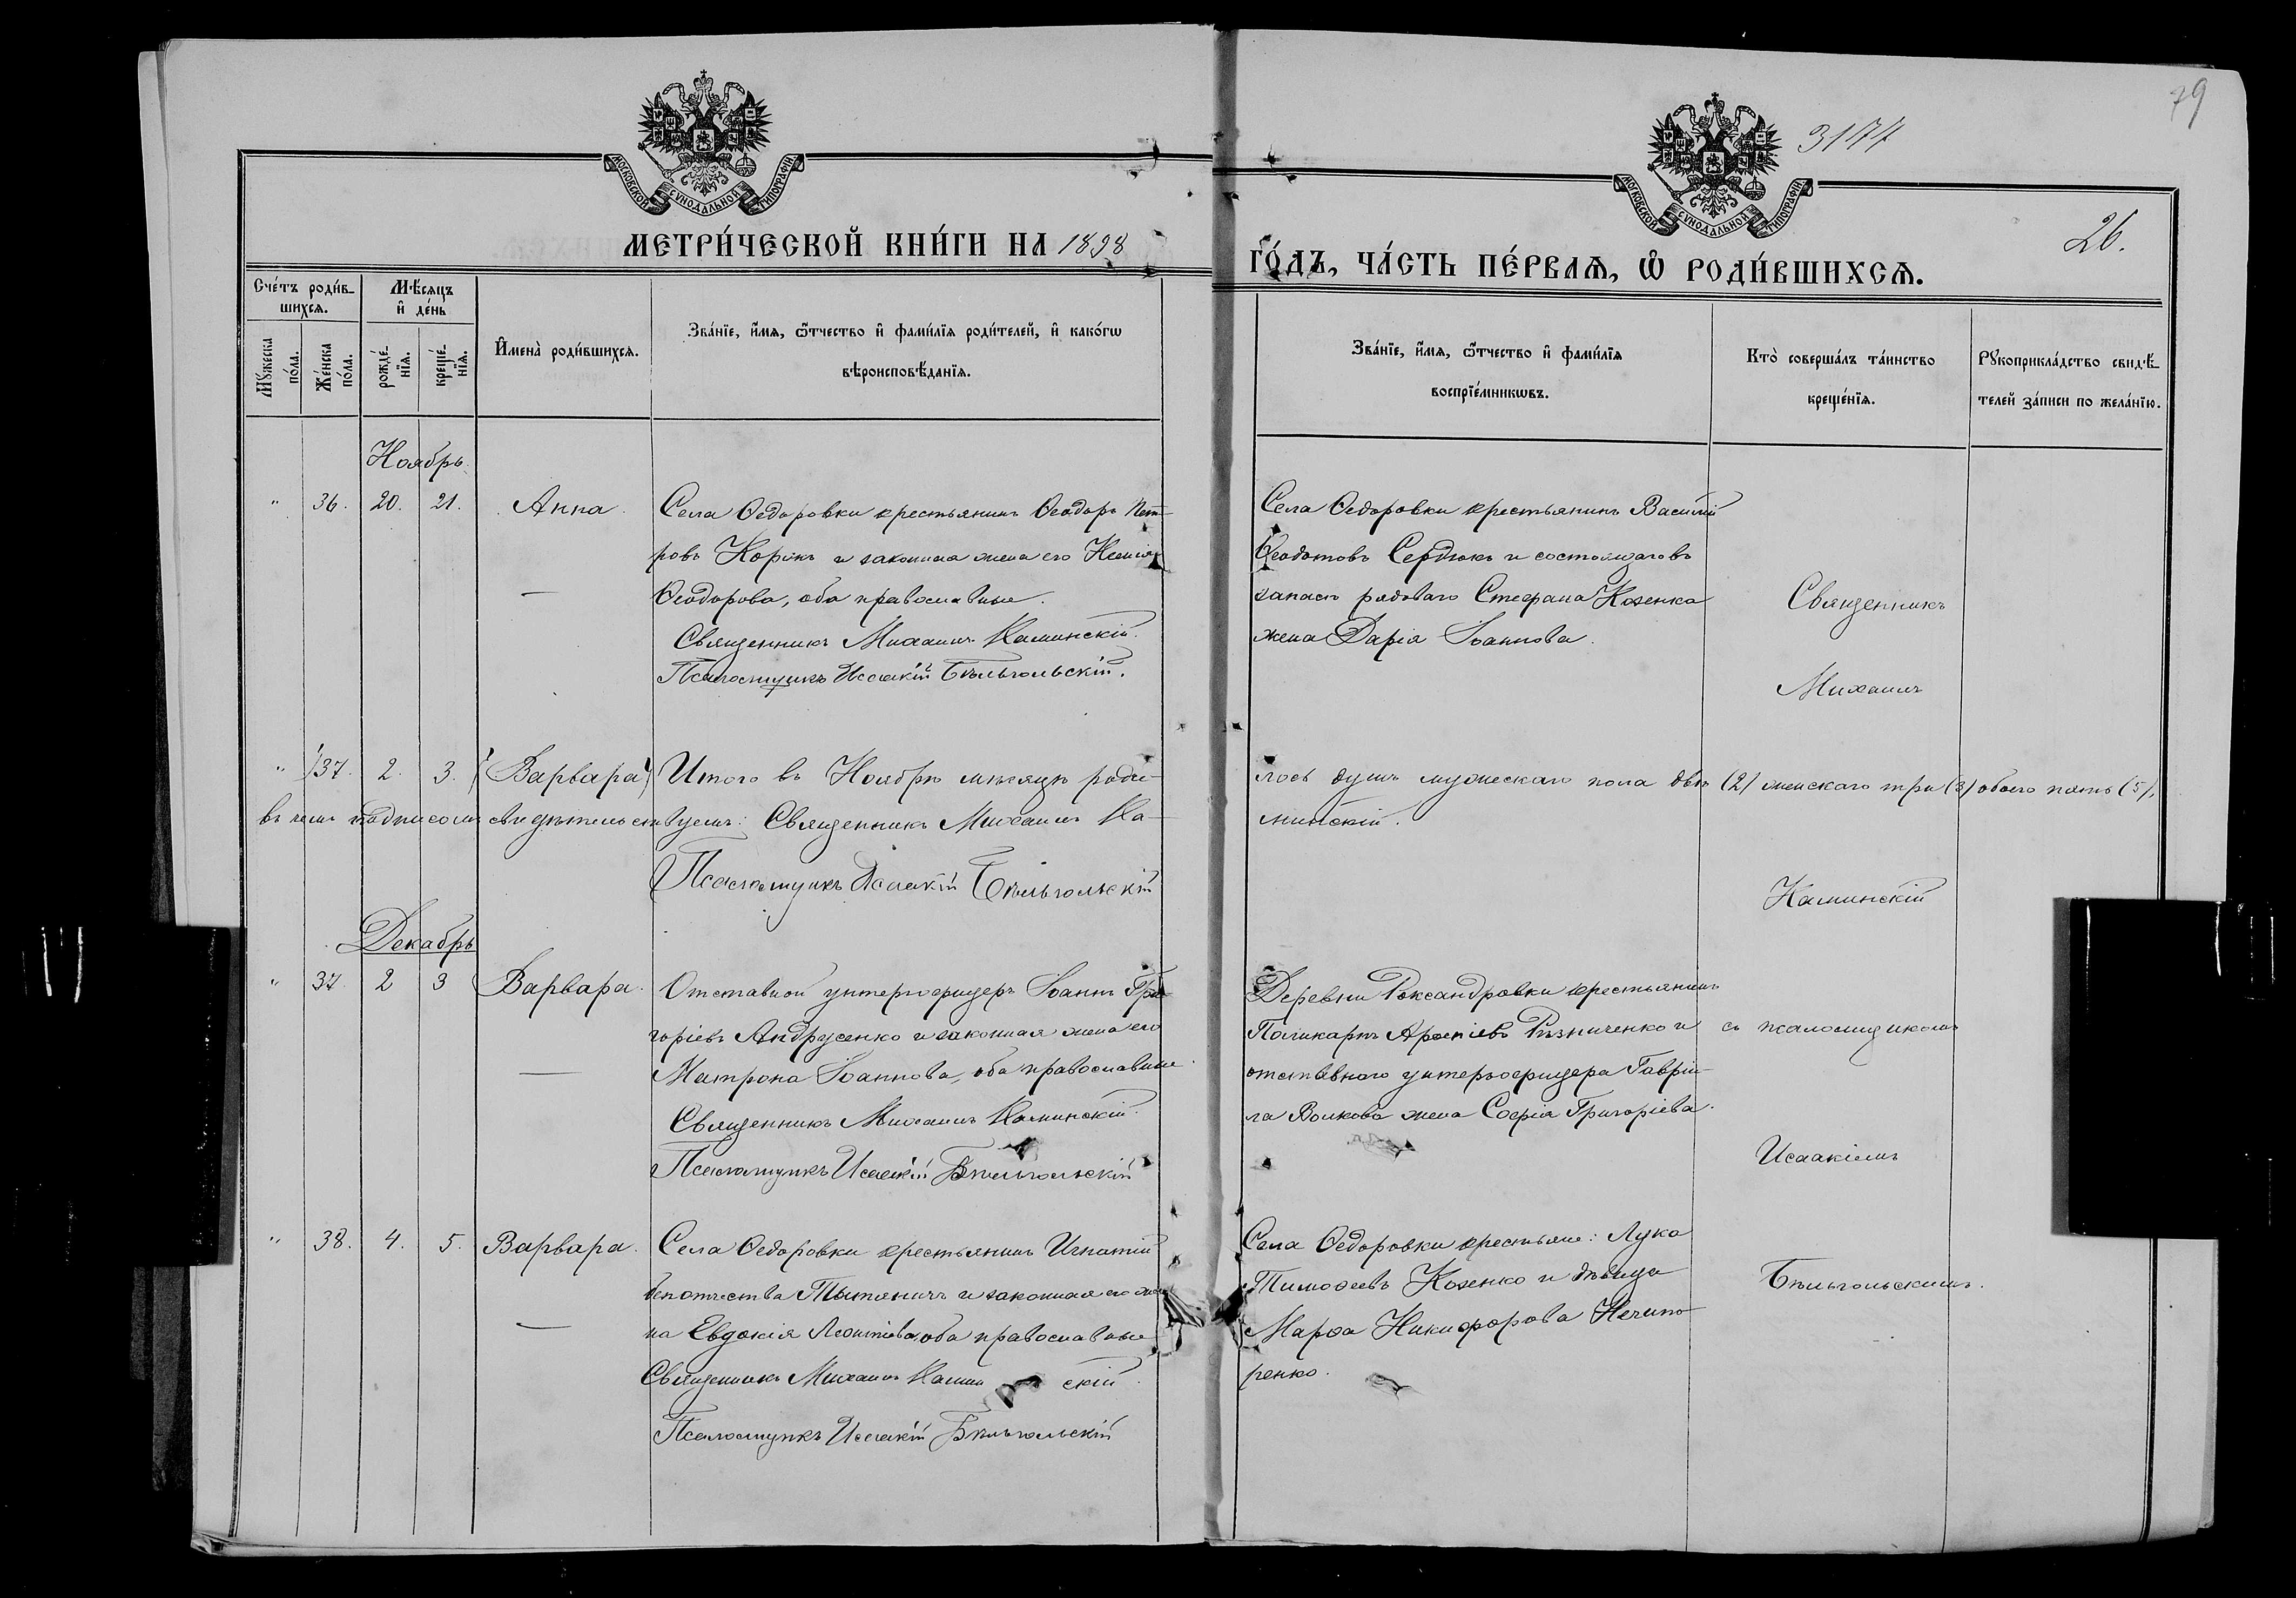 79
3177
МОСКОВСКОЙ СѴНОДАЛЬНОЙ ТИПОГРАФІИ
МОСКОВСКОЙ СѴНОДАЛЬНОЙ ТИПОГРАФІИ
26.
МЕТРИ́ЧЕСКОЙ КНИ́ГИ НА 1898
ГО́ДЪ, ЧА́СТЬ ПЕ́РВАѦ, Ѿ РОДИ́ВШИХСѦ.
Сче́тъ роди́в-
шихсѧ.
Мѣ́сѧцъ
и҆ де́нь
Мꙋжеска по́ла.
Же́нска по́ла.
рожде́-
нїѧ.
креще́-
нїѧ.
И҆мена̀ роди́вшихсѧ.
Зва́нїе, и҆́мѧ, ѻ҆́тчество и҆ фами́лїѧ роди́телей, и҆ како́гѡ
вѣроисповѣ́данїѧ.
Зва́нїе, и҆́мѧ, ѻ҆́тчество и҆ фами́лїѧ
воспрїе́мникѡвъ.
Кто̀ соверша́лъ та́инство
креще́нїѧ.
Рꙋкоприкла́дство свидѣ́-
телей за́писи по жела́нїю.
Ноябрь
" 36. 20. 21. Анна.
Села Ѳедоровки крестьянинъ Ѳеодоръ Пет-
ровъ Корякъ и законная жена его Ксенія
Ѳеодорова, оба православные.
Священникъ Михаилъ Каминскій.
Псаломщикъ Исаакій Бѣльгольскій.
Села Ѳедоровки крестьянинъ Василій
Ѳеодотовъ Сердюкъ и состоящаго въ
запасѣ рядоваго Стефана Козенка
жена Дарія Іоаннова.
Священникъ
Михаилъ
" 37. 2. 3. (Варвара)
Итого въ Ноябрѣ мѣсяцѣ роди-
лось душъ мужескаго пола двѣ (2) женскаго три (3) обоего пять (5),
въ чемъ подписомъ свидѣтельствуемъ: Священникъ Михаилъ Ка-
минскій.
Псаломщикъ Исаакій Бѣльгольскій
Каминскій
Декабрь
" 37. 2 3 Варвара.
Отставной унтерофицеръ Іоаннъ Гри-
горіевъ Андрусенко и законная жена его
Матрона Іоаннова, оба православные.
Священникъ Михаилъ Каминскій.
Псаломщикъ Исаакій Бѣльгольскій
Деревни Роксандровки крестьянинъ
Поликарпъ Рѣзниченко и
отставного унтерофицера Гаврі-
ла Волкова жена Софія Григоріева.
съ псаломщикомъ
Исаакіемъ
" 38. 4. 5. Варвара.
Села Ѳедоровки крестьянинъ Игнатій
безотчества и законная его же-
на Евдокія Леонтіева, оба православные
Священникъ Михаилъ Камин скій.
Псаломщикъ Исаакій Бѣльгольскій
Села Ѳедоровки крестьяне: Лука
Тимоѳеевъ Козенко и дѣвица
Марѳа Никифорова Нечипо-
ренко.
Бѣльгольскимъ.